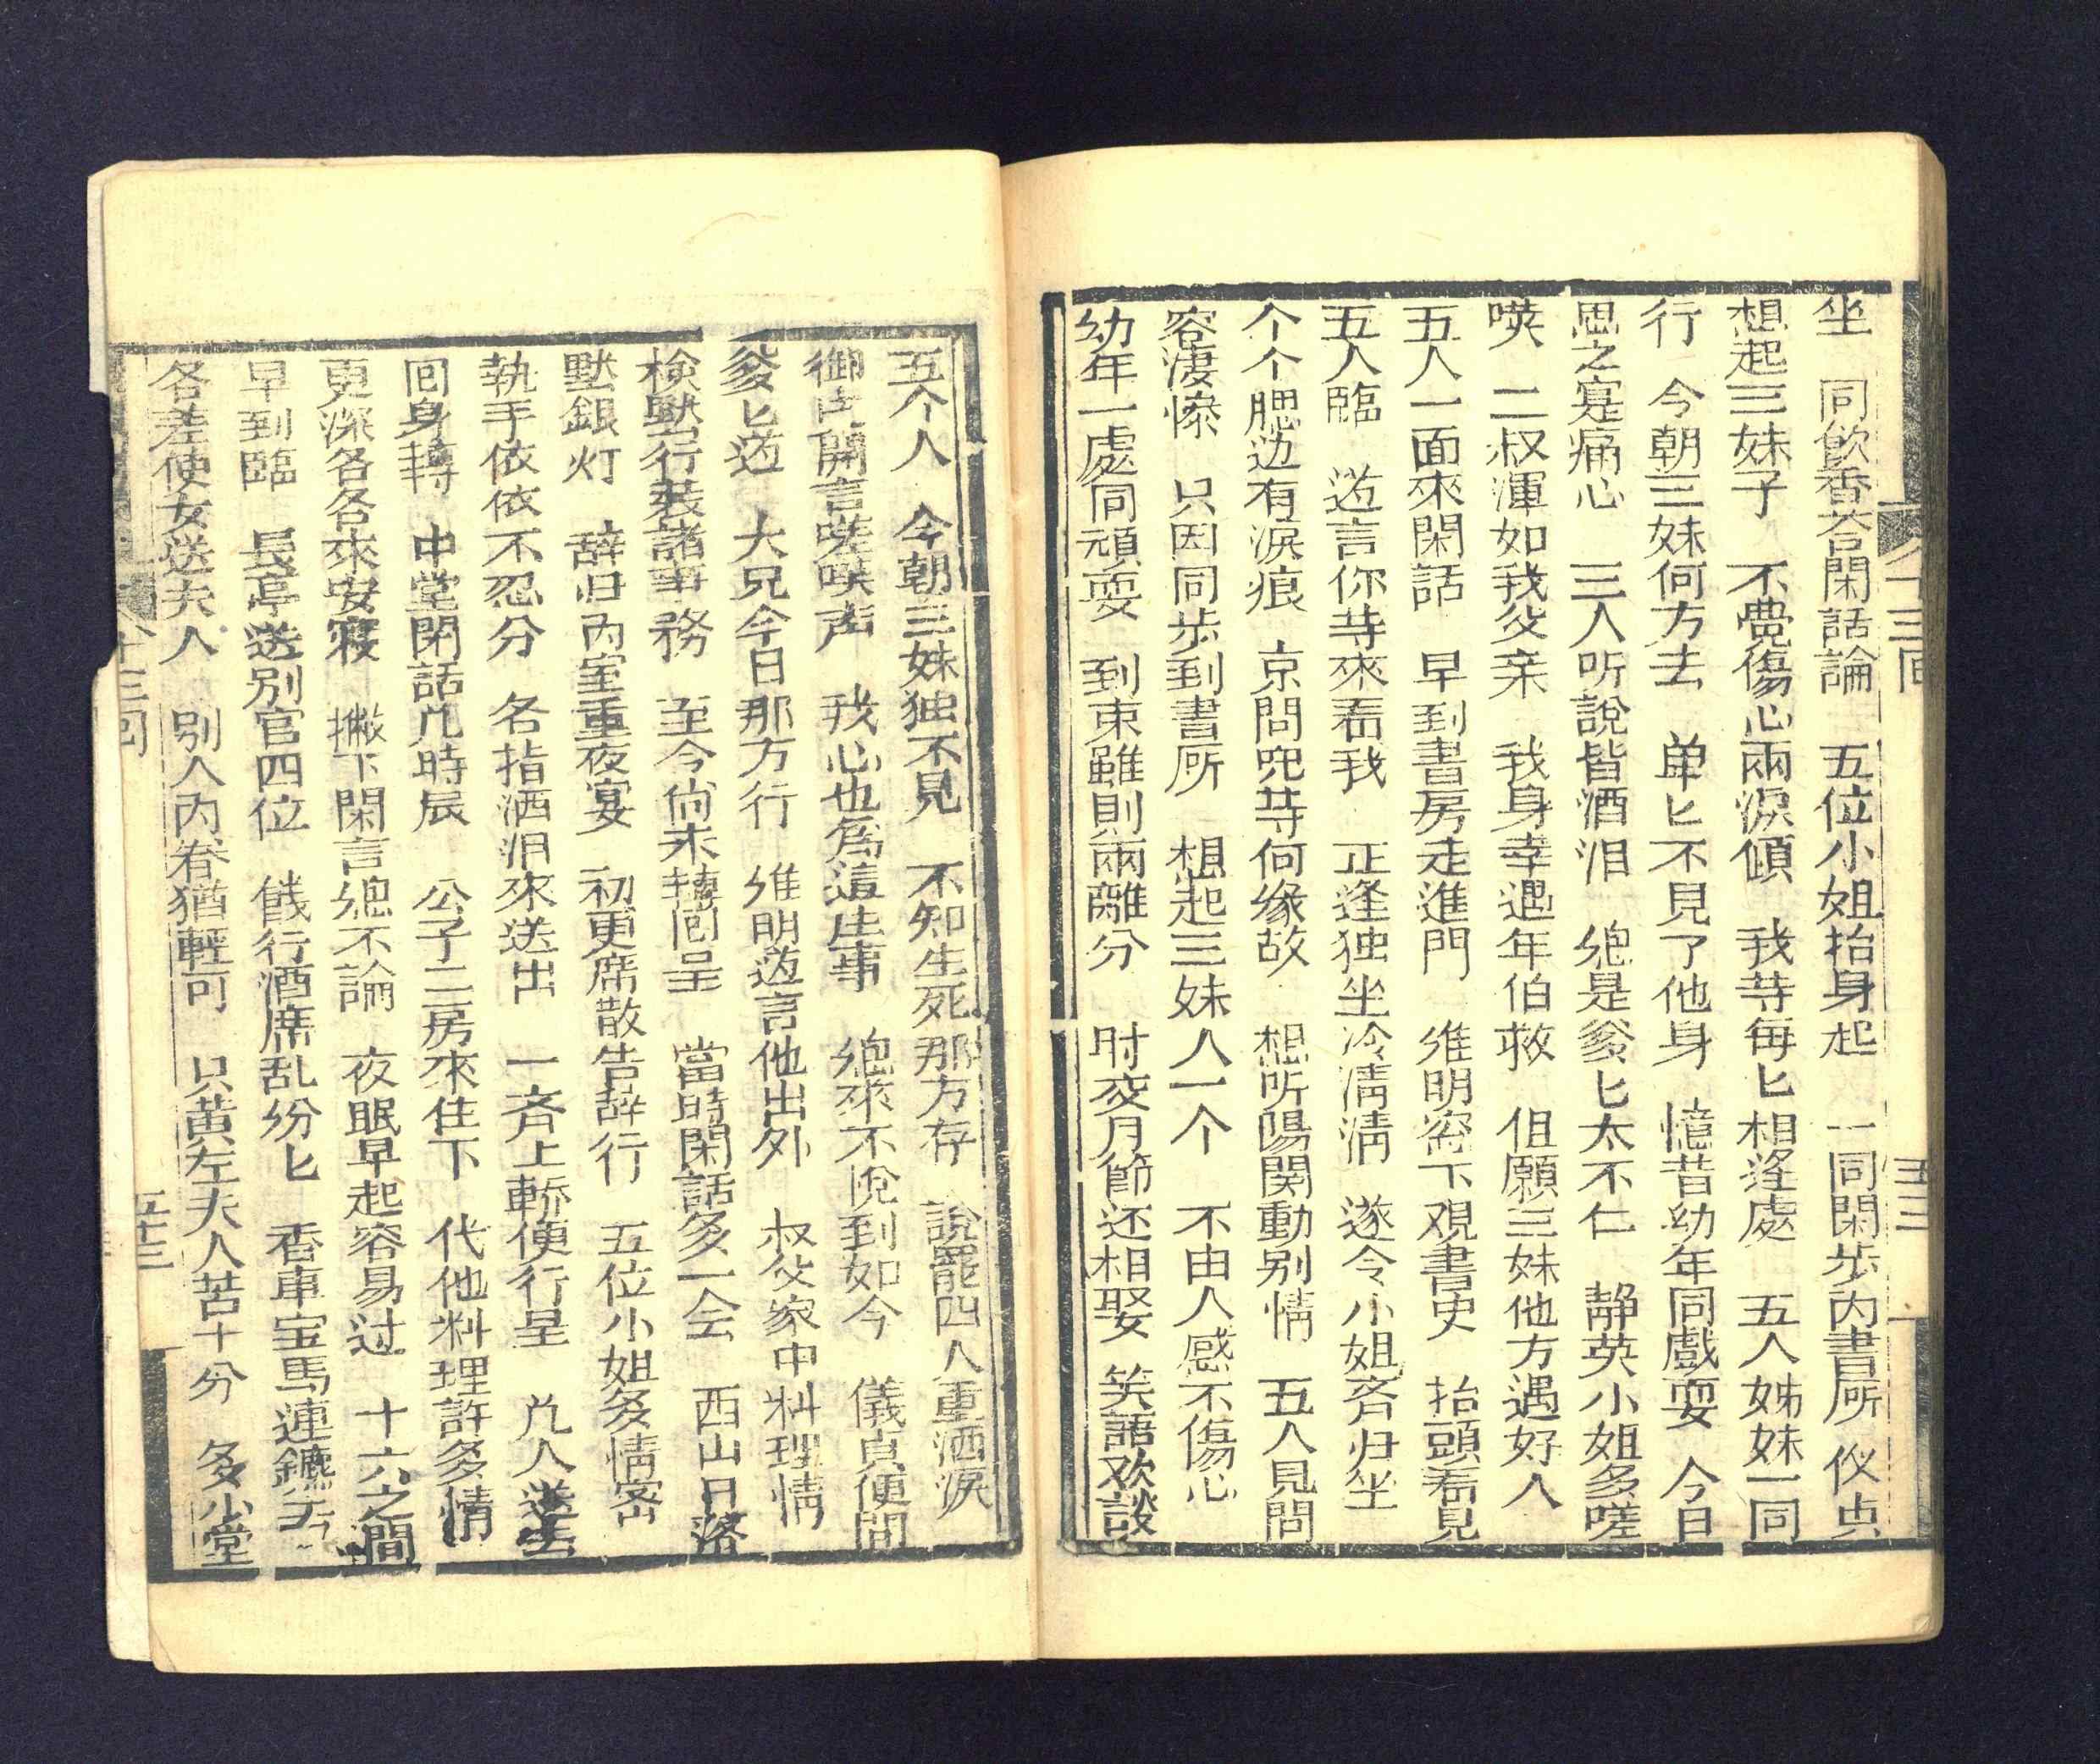 坐　同飲香茶閑話論　五位小姐抬身起　一同閑步内書所　仪貞
想起三妹子　不覺傷心兩淚傾　我䓁每匕相逢處　五人姊妹一同
行　今朝三妹何方去　单匕不見了他身　憶昔幼年同戲耍　今日
思之寔痛心　三人听說皆洒泪　緫是爹匕太不仁　靜英小姐多嗟
嘆　二叔渾如我父亲　我身幸遇年伯救　但願三妹他方遇好人
五人一面來閑話　早到書房走進門　维明窓下覌書史　抬頭看見
五人臨　遊言你䓁來看我　正逢独坐冷清清　遂令小姐斉归坐
个个腮边有淚痕　京問児䓁何缘故　想听陽関動别情　五人見問
容凄惨　只因同步到書所　想起三妹人一个　不由人感不傷心
幼年一處同頑耍　到東雖則兩離分　时交月節还相娶　笑語欢談
五个人　今朝三妹独不見　不知生死那方存　說罷四人重洒淚
御史開言嗟嘆声　我心也爲這庄事　緫來不悅到如今　儀貞便問
爹匕道　大兄今日那方行　维明道言他出外　叔父家中料理情
検點行装諸事務　至今尚未轉囘呈　當時閑話多一会　西山日落
點銀灯　辞归内室重夜宴　初更席散告辞行　五位小姐多情密
執手依依不忍分　各指洒泪來送出　一斉上轎便行呈　凢人送去
囘身轉　中堂閑話凢時辰　公子二房來住下　代他料理許多情
更深各各來安寢　撇下閑言緫不論　夜眠早起容易过　十六之間
早到臨　長亭送别官四位　餞行酒席乱纷匕　香車宝馬連鑣去
各差使女送夫人　别人内眷猶輕可　只黄左夫人苦十分　多少堂
十三囘　五十三